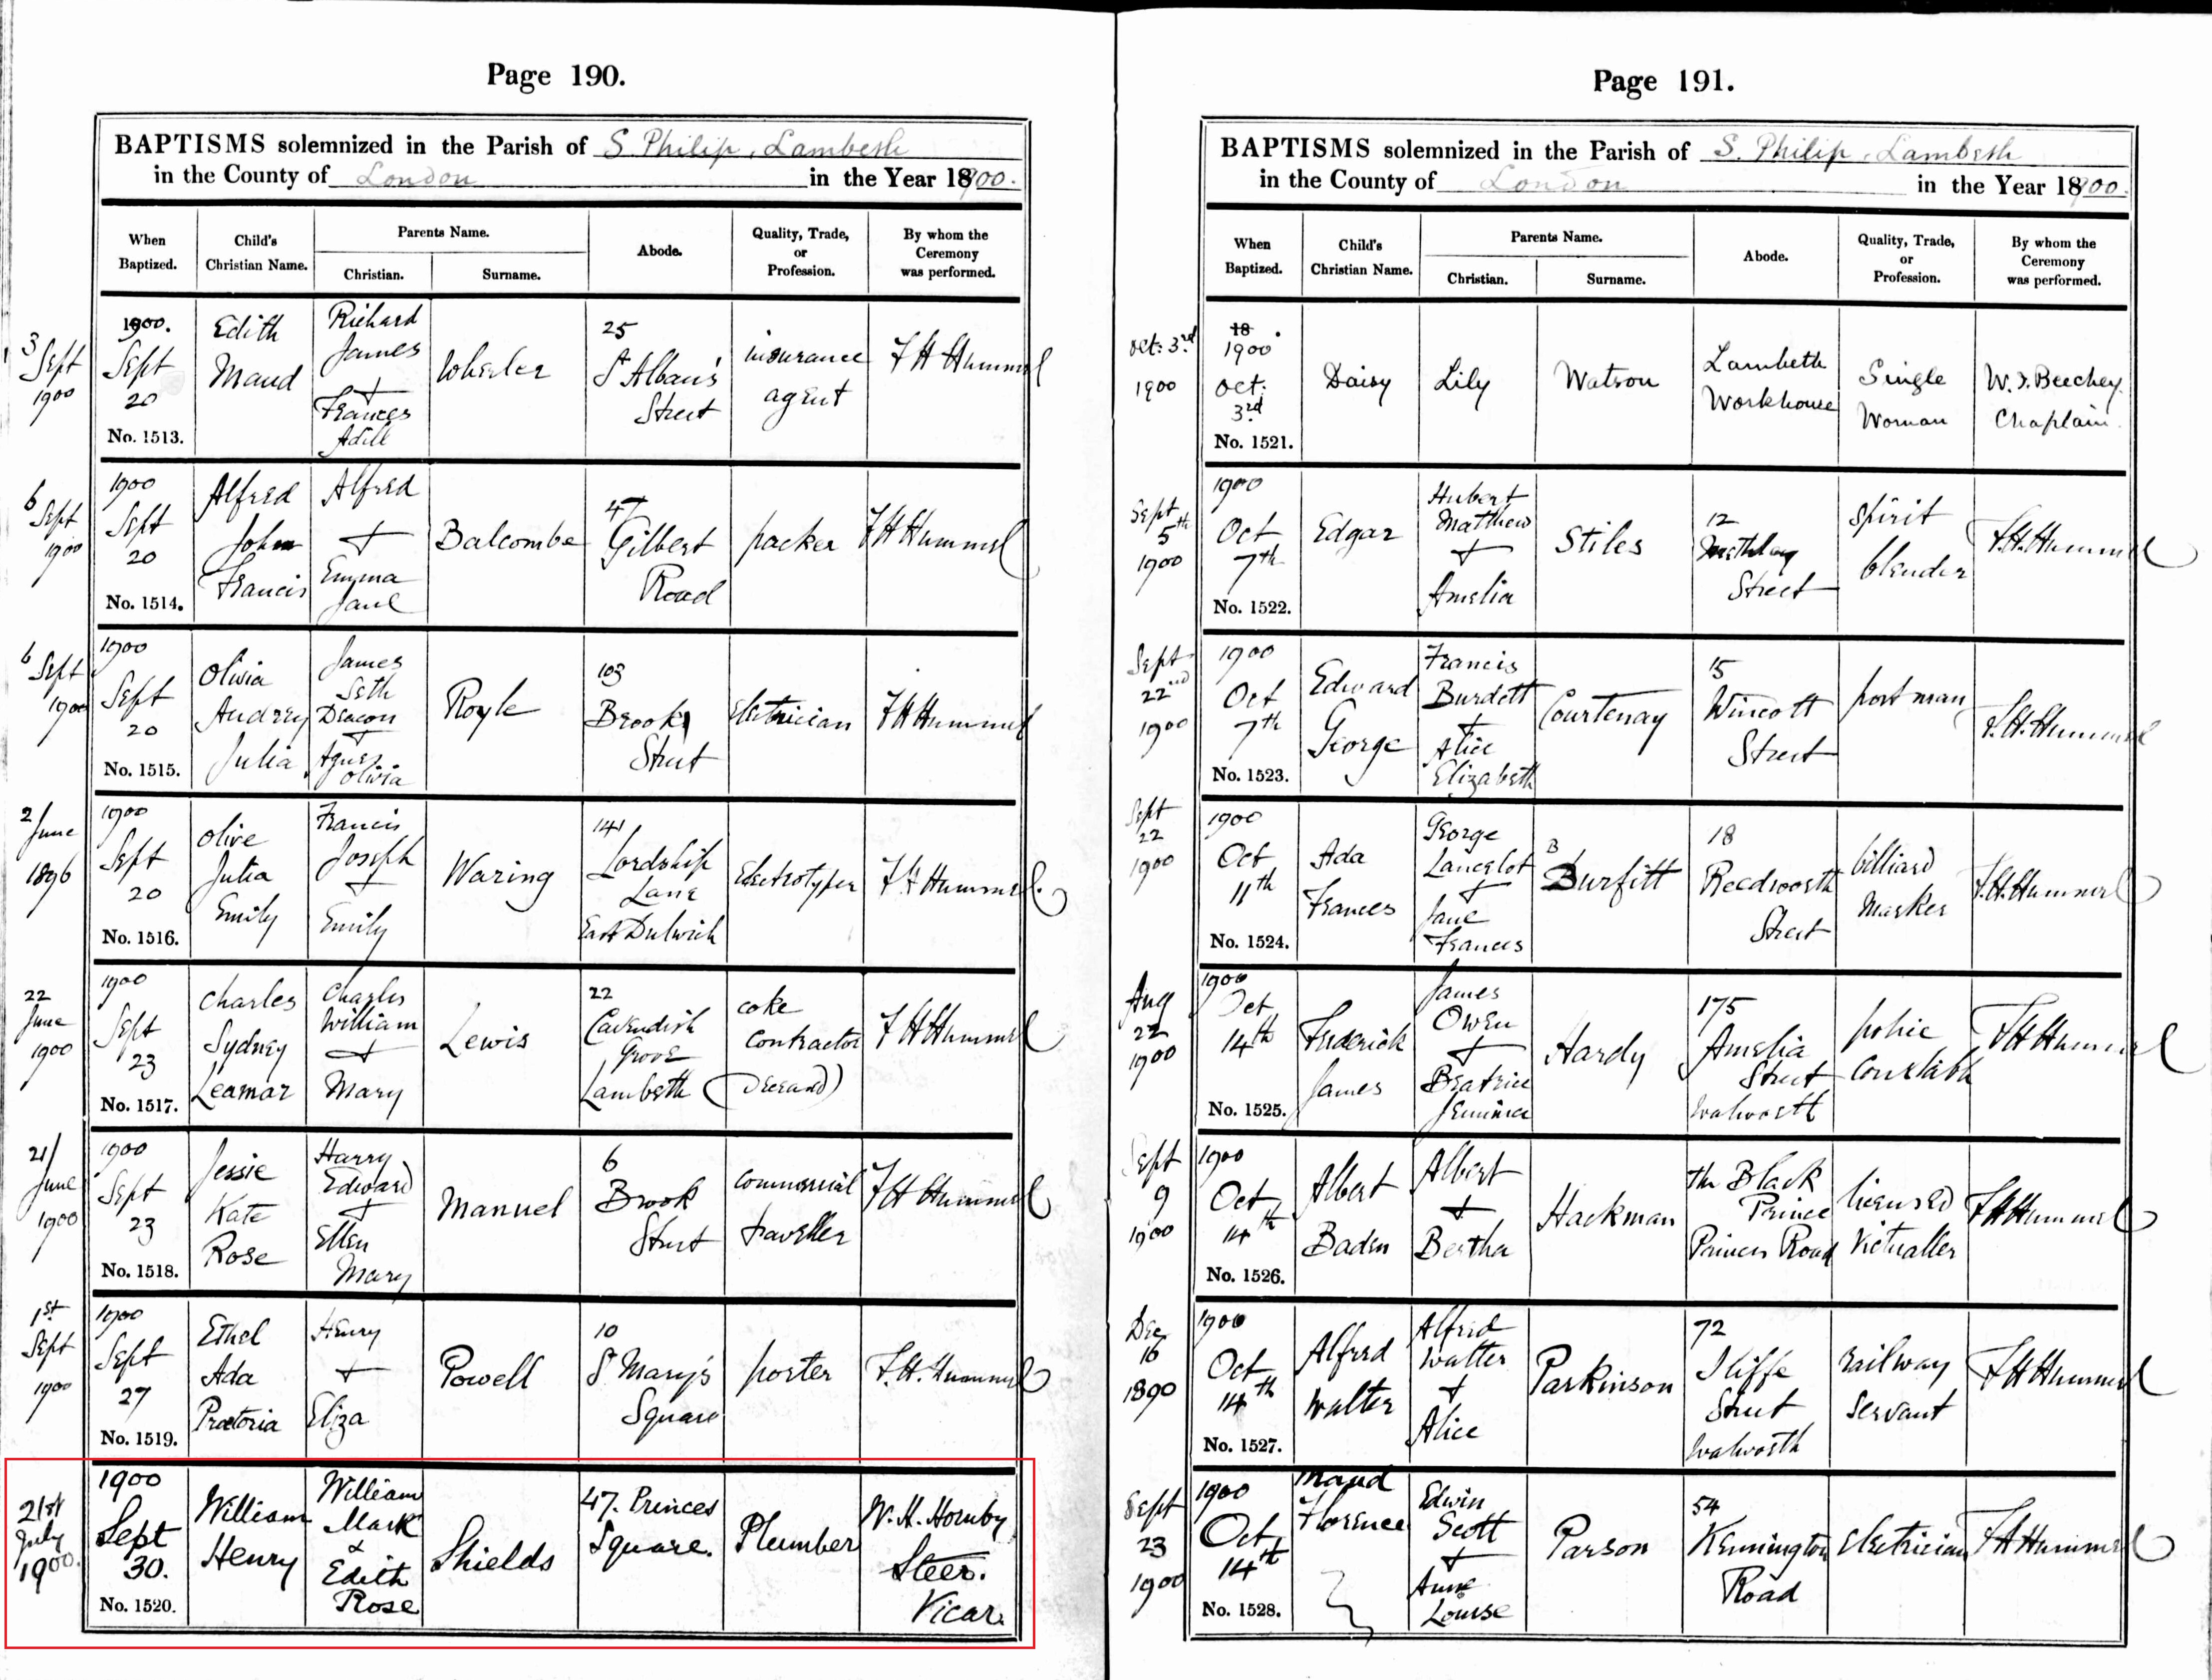 Page 190.
BAPTISMS solemnized in the Parish of S. Philip, Lambeth
in the County of London in the Year 1900.
When Baptized.
Child's Christian Name.
Parents Name.
Christian.
Surname.
Abode.
Quality, Trade, or Profession.
By whom the Ceremony was performed.
3 Sept 1900
1900. Sept 20
No. 1513.
Edith Maud
Richard James + Frances
Wheeler
25 St Alban's Street
insurance agent
F H Hummel
6 Sept 1900
1900 Sept 20
No. 1514.
Alfred John Francis
Alfred + Emma Jane
Balcombe
47 Gilbert Road
packer
F H Hummel
6 Sept 1900
1900 Sept 20
No. 1515.
Olivia Audrey Julia
James Seth Deacon + Agnes Olivia
Royle
103 Brook Street
Electrician
F H Hummel
2 June 1896
1900 Sept 20
No. 1516.
Olive Julia Emily
Francis Joseph + Emily
Waring
141 Lordship Lane East Dulwich
Electrotyper
F. H Hummel.
22 June 1900
1900 Sept 23
No. 1517.
Charles Sydney Leamar
Charles William + Mary
Lewis
22 Cavendish Grove Lambeth
coke contractor
F H Hummel
21 June 1900
1900 Sept 23
No. 1518.
Jessie Kate Rose
Harry Edward + Ellen Mary
Manuel
6 Brook Street
commercial traveller
F H Hummel
1st Sept 1900
1900 Sept 27
No. 1519.
Ethel Ada Praetoria
Henry + Eliza
Powell
10 St Mary's Square
porter
F. H. Hummel
21st July 1900.
1900 Sept 30.
No. 1520.
William Henry
William Mark & Edith Rose
Shields
47. Princes Square.
Plumber
W. H. Hornby Steer. Vicar.
Page 191.
BAPTISMS solemnized in the Parish of S. Philip, Lambeth
in the County of London in the Year 1900.
When Baptized.
Child's Christian Name.
Parents Name.
Christian.
Surname.
Abode.
Quality, Trade, or Profession.
By whom the Ceremony was performed.
Oct: 3rd 1900
18 1900 Oct: 3rd
No. 1521.
Daisy
Lily
Watson
Lambeth Workhouse
Single Woman
W. J. Beechey. Chaplain.
Sept 5th 1900
1900 Oct 7th
No. 1522.
Edgar
Hubert Matthew + Amelia
Stiles
12 Street
spirit blender
F. H. Hummel
Sept 22nd 1900
1900 Oct 7th
No. 1523.
Edward George
Francis Burdett + Alice Elizabeth
Courtenay
15 Wincott Street
postman
F. H. Hummel
Sept 22 1900
1900 Oct 11th
No. 1524.
Ada Frances
George Lancelot + Jane Frances
B Burfitt
18 Reedworth Street
billiard Marker
F. H. Hummel
Aug 22 1900
1900 Oct 14th
No. 1525.
Frederick James
James Owen + Beatrice Jemima
Hardy
175 Amelia Street Walworth
police constable
F H Hummel
Sept 9 1900
1900 Oct 14th
No. 1526.
Albert Baden
Albert + Bertha
Hackman
The Black Prince Princes Road
licensed Victualler
F H Hummel
Dec 16 1890
1900 Oct 14th
No. 1527.
Alfred Walter
Alfred Walter + Alice
Parkinson
72 Iliffe Street Walworth
railway servant
F H Hummel
Sept 23 1900
1900 Oct 14th
No. 1528.
Maud Florence
Edwin Scott + Annie Louise
Parson
54 Kennington Road
electrician
F H Hummel